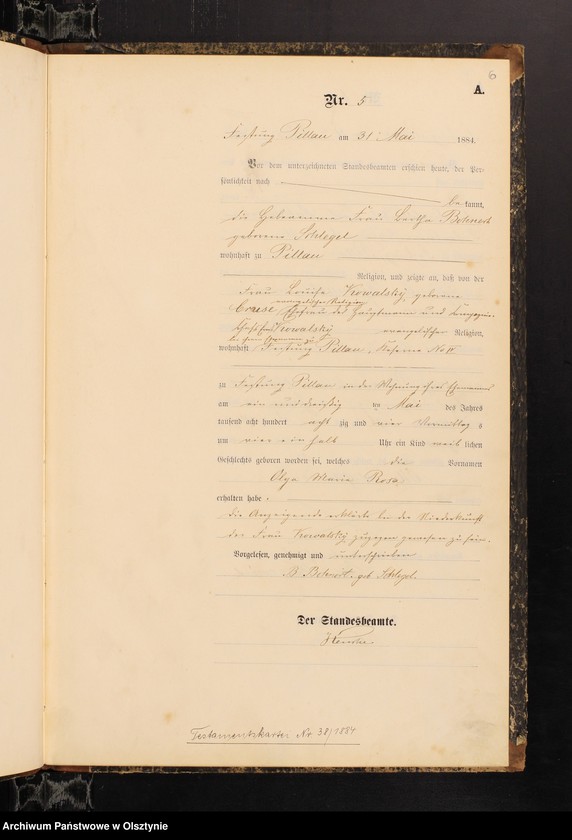 6
A.
Nr. 5
Festung Pillau am 31 Mai 1884.
Vor dem unterzeichneten Standesbeamten erschien heute, der Per-
sönlichkeit nach
bekannt,
die Hebeamme Frau Bertha
geborene Schlegel
wohnhaft zu Pillau
Religion, und zeigte an, daß von der
Frau Louise Kowalsky, geborene
evangelischer Religion
Cruse Ehefrau des Hauptmann und Kompagnie-
Chefs Kowalsky evangelischer Religion,
bei ihrem Ehemann zu
wohnhaft Festung Pillau, Kaserne No II
zu Festung Pillau in der Wohnung ihres Ehemannes
am ein und dreißig ten Mai des Jahres
tausend acht hundert acht zig und vier Vormittags
um vier ein halb Uhr ein Kind weib lichen
Geschlechts geboren worden sei, welches die Vornamen
Olga Maria Rosa
erhalten habe.
die Anzeigende erklärte bei der Niederkunft
der Frau Kowalsky zugegen gewesen zu sein.
Vorgelesen, genehmigt und unterschrieben
B. geb Schlegel.
Der Standesbeamte.
Testamentskartei Nr 38/1884
Archiwum Państwowe w Olsztynie